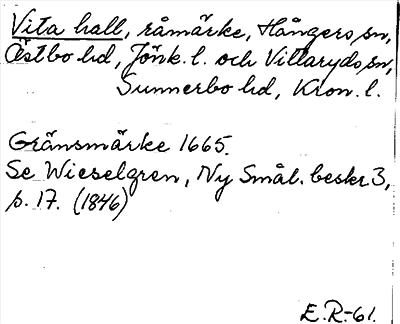 Vita hall, råmärke, Hångers sn,
Östbo hd, Jönk. l. och Villaryds sn,
Sunnerbo hd, Kron. l.
Gränsmärke 1665.
Se Wieselgren, Ny Smål. beskr 3,
s. 17. (1846)
E.R-61.